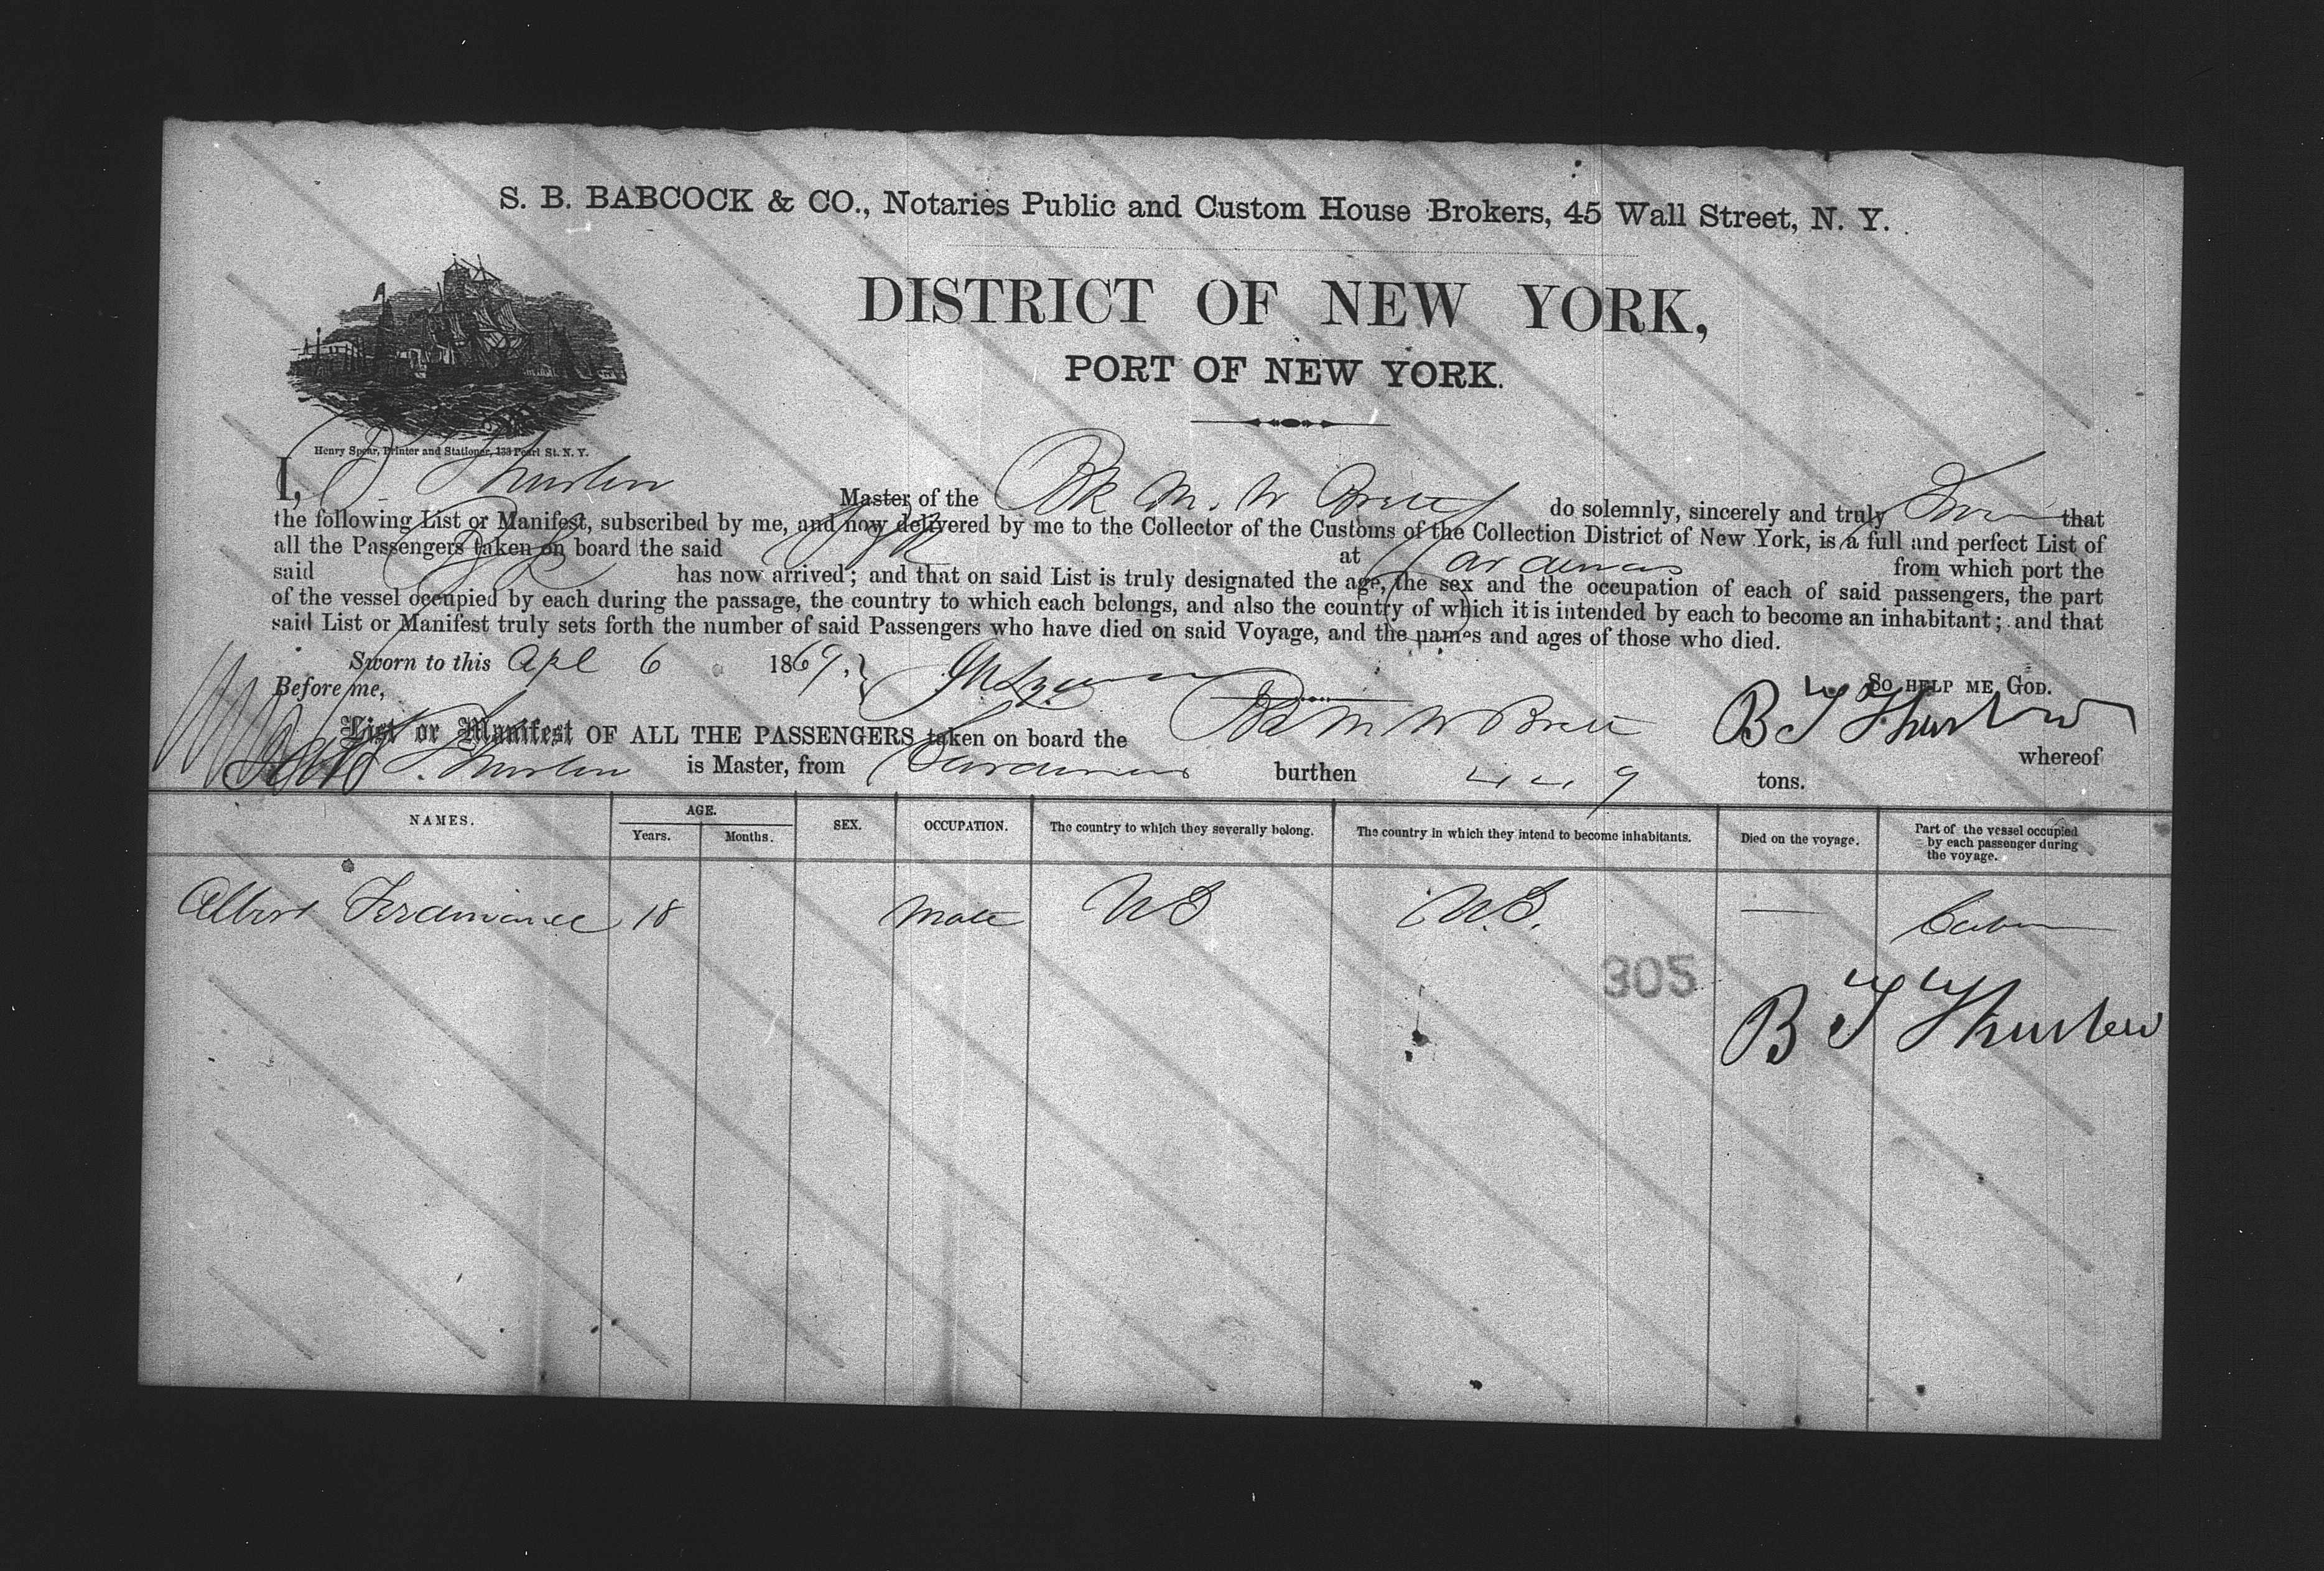 S. B. BABCOCK & CO., Notaries Public and Custom House Brokers, 45 Wall Street, N. Y.
DISTRICT OF NEW YORK,
PORT OF NEW YORK.
Henry Spear, Printer and Stationer, 133 Pearl St. N. Y.
I, Master of the Bk M. W. Brett do solemnly, sincerely and truly that
the following List or Manifest, subscribed by me, and now delivered by me to the Collector of the Customs of the Collection District of New York, is a full and perfect List of
all the Passengers taken on board the said Bk at Cardenas from which port the
said Bk has now arrived; and that on said List is truly designated the age, the sex and the occupation of each of said passengers, the part
of the vessel occupied by each during the passage, the country to which each belongs, and also the country of which it is intended by each to become an inhabitant; and that
said List or Manifest truly sets forth the number of said Passengers who have died on said Voyage, and the names and ages of those who died.
Sworn to this Apl 6 1869.
So help me God.
Before me,
B T Thurlow
List or Manifest OF ALL THE PASSENGERS taken on board the Bk M W Brett whereof
is Master, from Cardenas burthen 449 tons.
NAMES. AGE. Years. Months. SEX. OCCUPATION. The country to which they severally belong. The country in which they intend to become inhabitants. Died on the voyage. Part of the vessel occupied by each passenger during the voyage.
Albert Ferdinand 18 Mate US U.S. — Cabin
305
B T Thurlow